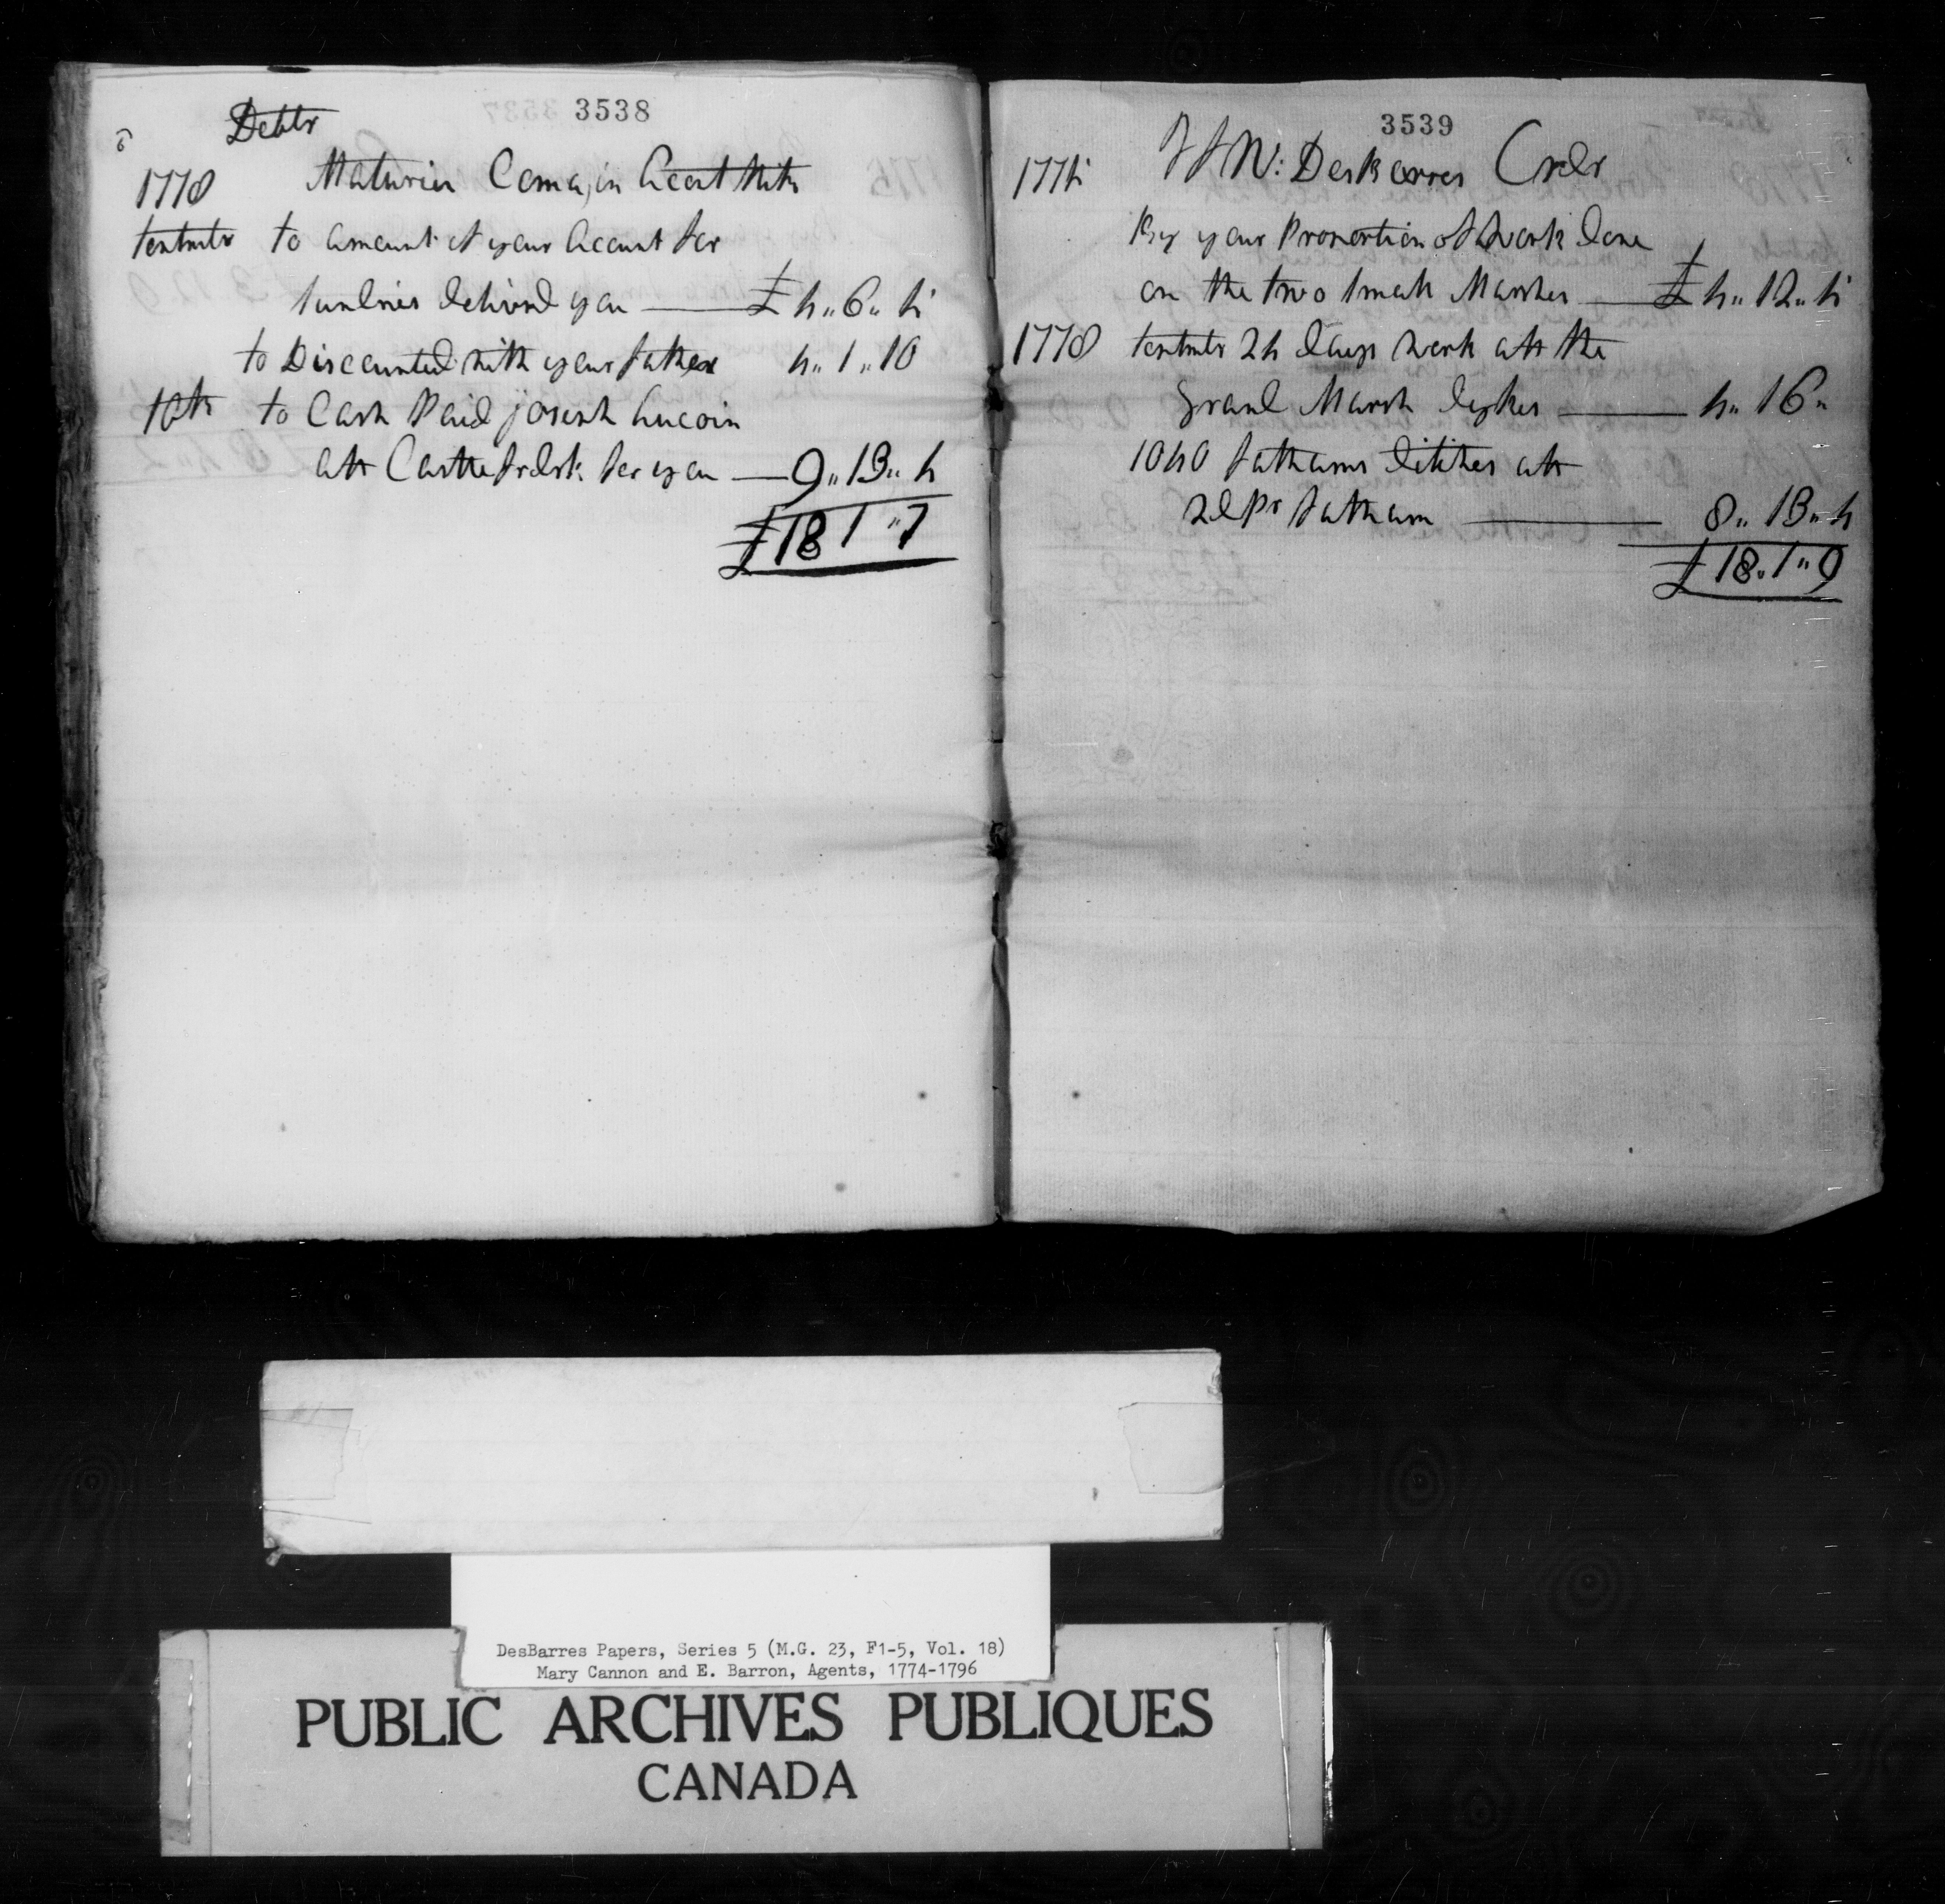 6
Debtr
3538
1778 Maturien Coma,in Acout with
septmbr to amount of your Acount for
sundries deliverd you — £4..6..5
to Discounted with your father 4..1..10
10th to Cash Paid joseph Aucoin
att Castlefredrk for you — 9..13..4
£18 1..7
3539
1775 J F W: Desbarres Credr
By your Proportion of work done
on the two small Marshes — £4..12..5
1778 septmbr 24 days work att the
grand Marsh dykes — 4..16..
1040 fathams ditches att
2d Pr fatham — 8..13..4
£18..1..9
DesBarres Papers, Series 5 (M.G. 23, F1-5, Vol. 18)
Mary Cannon and E. Barron, Agents, 1774-1796
PUBLIC ARCHIVES PUBLIQUES
CANADA